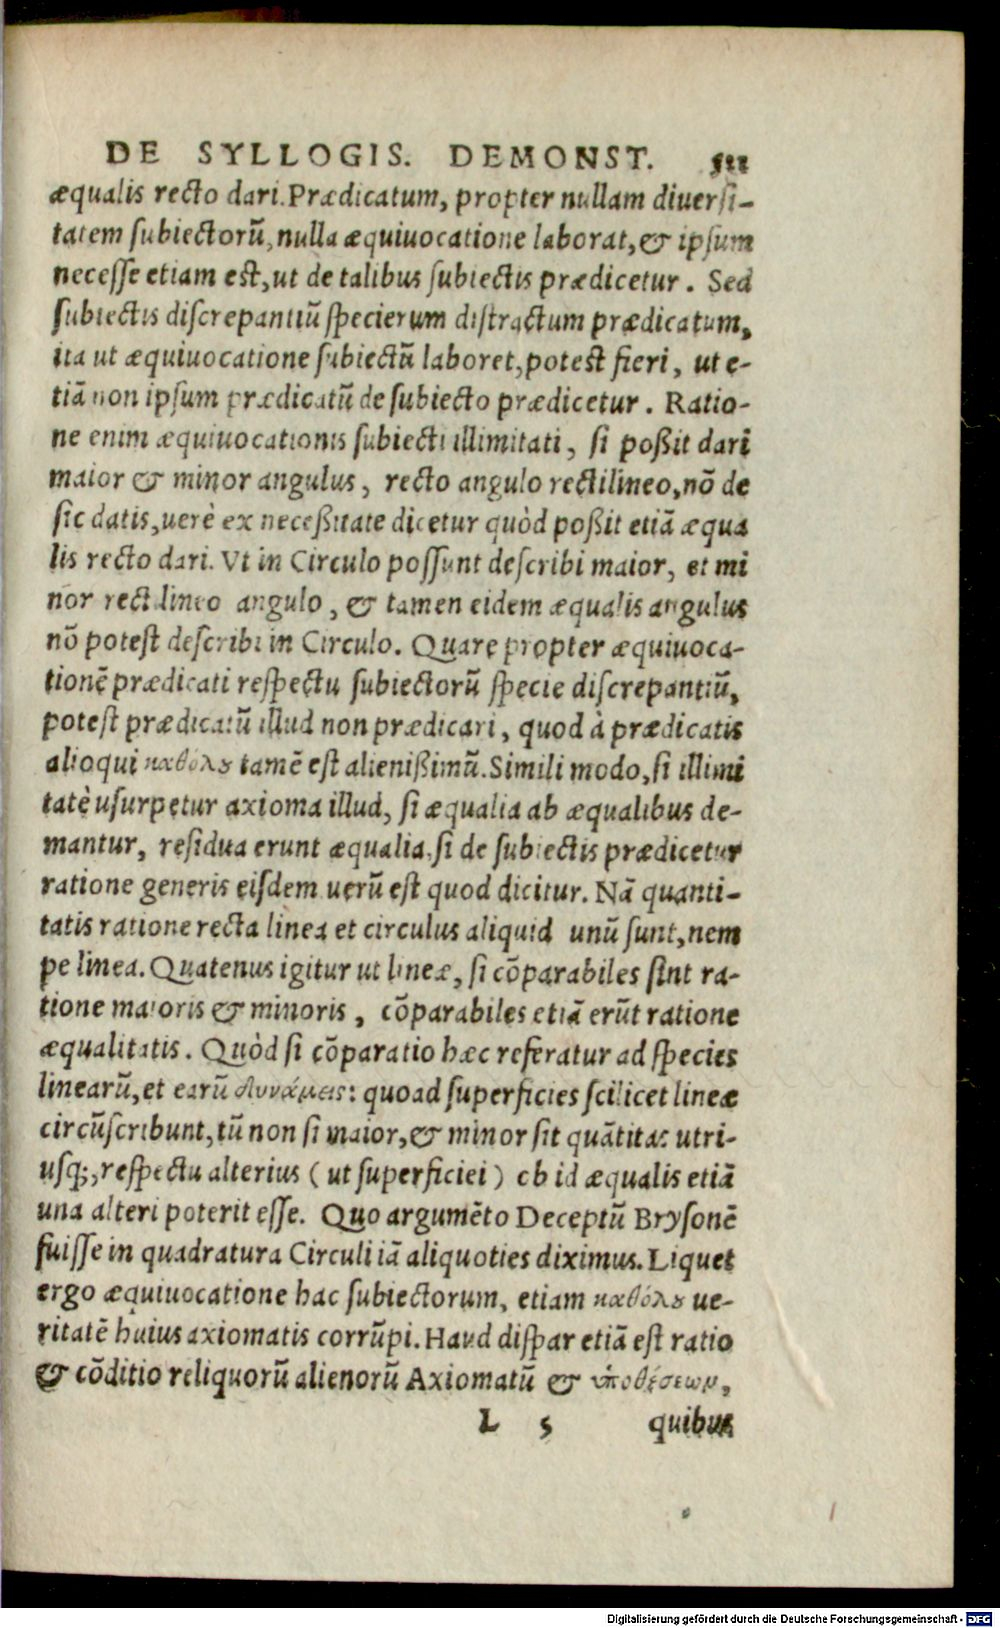 DE SYLLOGIS. DEMONST.
æqualis recto dari. Prædicatum, propter nullam diuersi-
tatem subiectorũ, nulla æquiuocatione laborat, & ipsum
necesse etiam est, ut de talibus subiectis prædicetur. Sed
subiectis discrepantiũ specierum distractum prædicatum,
ita ut æquiuocatione subiectũ laboret, potest fieri, ut e-
tiã non ipsum prædicatũ de subiecto prædicetur. Ratio-
ne enim æquiuocationis subiecti illimitati, si poßit dari
maior & minor angulus, recto angulo rectilineo, nõ de
sic datis, uerè ex neceßitate dicetur quòd poßit etiã æqua
lis recto dari. Vt in Circulo possunt describi maior, et mi
nor rectilineo angulo, & tamen eidem æqualis angulus
nõ potest describi in Circulo. Quare propter æquiuoca-
tionẽ prædicati respectu subiectorũ specie discrepantiũ,
potest prædicatũ illud non prædicari, quod à prædicatis
alioqui καθόλου tamẽ est alienißimũ. Simili modo, si illimi
tatè usurpetur axioma illud, si æqualia ab æqualibus de-
mantur, residua erunt æqualia, si de subiectis prædicetur
ratione generis eisdem uerũ est quod dicitur. Nã quanti-
tatis ratione recta linea et circulus aliquid unũ sunt, nem
pe linea. Quatenus igitur ut lineæ, si cõparabiles sint ra-
tione maioris & minoris, cõparabiles etiã erũt ratione
æqualitatis. Quòd si cõparatio hæc referatur ad species
linearũ, et earũ δυνάμεις: quoad superficies scilicet lineæ
circũscribunt, tũ non si maior, & minor sit quãtitas utri-
usq;, respectu alterius (ut superficiei) ob id æqualis etiã
una alteri poterit esse. Quo argumẽto Deceptũ Brysonẽ
fuisse in quadratura Circuli iã aliquoties diximus. Liquet
ergo æquiuocatione hac subiectorum, etiam καθόλου ue-
ritatẽ huius axiomatis corrũpi. Haud dispar etiã est ratio
& cõditio reliquorũ alienorũ Axiomatũ & ὑποθέσεων,
L 5 quibus
Digitalisierung gefördert durch die Deutsche Forschungsgemeinschaft - DFG